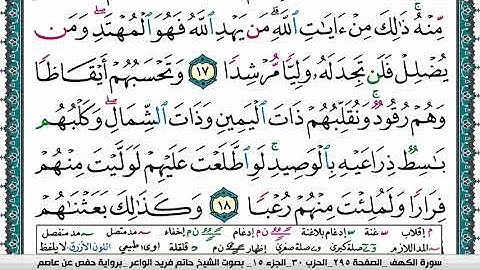 مِّنْهُ ۚ ذَٰلِكَ مِنْ ءَايَٰتِ ٱللَّهِ ۗ مَن يَهْدِ ٱللَّهُ فَهُوَ ٱلْمُهْتَدِ ۖ وَمَن
يُضْلِلْ فَلَن تَجِدَ لَهُۥ وَلِيًّا مُّرْشِدًا ١٧ وَتَحْسَبُهُمْ أَيْقَاظًا
وَهُمْ رُقُودٌ ۚ وَنُقَلِّبُهُمْ ذَاتَ ٱلْيَمِينِ وَذَاتَ ٱلشِّمَالِ ۖ وَكَلْبُهُم
بَٰسِطٌ ذِرَاعَيْهِ بِٱلْوَصِيدِ ۚ لَوِ ٱطَّلَعْتَ عَلَيْهِمْ لَوَلَّيْتَ مِنْهُمْ
فِرَارًا وَلَمُلِئْتَ مِنْهُمْ رُعْبًا ١٨ وَكَذَٰلِكَ بَعَثْنَٰهُمْ
م إقلاب غنة إدغام بلاغنة إدغام إخفاء مد متصل مد منفصل
المد اللازم صلة كبرى صلة صغرى إظهار قلقلة اوى طبيعي اللون الأزرق لا يلفظ
سورة الكهف _ الصفحة ٢٩٥ _ الحزب ٣٠ _ الجزء ١٥ _ بصوت الشيخ حاتم فريد الواعر _ برواية حفص عن عاصم